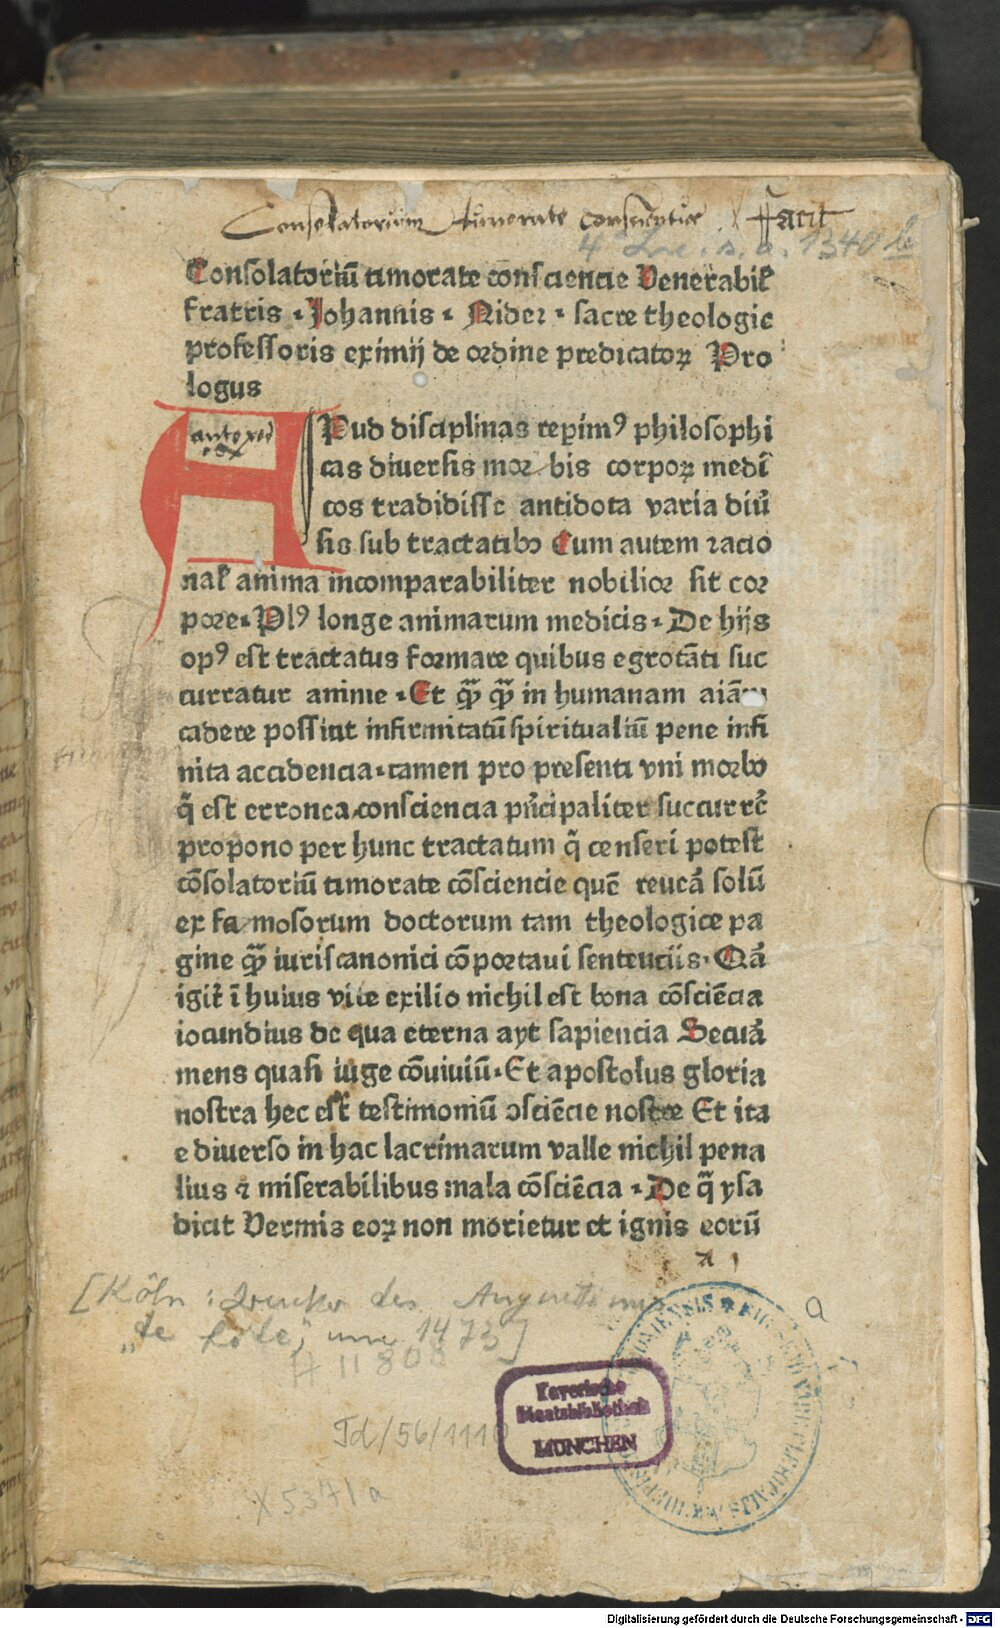 Consolatorium timorate conscientie
4° Inc. s. a. 1340 b
Consolatoriū timorate consciencie Venerabil̄
fratris · Johannis · Nider · sacre theologie
professoris eximij de ordine predicatoꝝ Pro
logus
APud disciplinas reperim⁹ philosophi
cas diuersis mor bis corpoꝝ medi
cos tradidisse antidota varia diu̓
sis sub tractatibꝫ Cum autem racio
nal̄ anima incomparabiliter nobilior sit cor
pore · Pl⁹ longe animarum medicis · De hijs
op⁹ est tractatus formare quibus egrotāti suc
curratur anime · Et qͣꝫ qͣꝫ in humanam aiām
cadere possint infirmitatū spiritualiū pene infi
nita accidencia · tamen pro presenti vni morbo
q̄ est erronea consciencia pn̓cipaliter succurrē
propono per hunc tractatum q̄ censeri potest
cōsolatoriū timorate cōsciencie quē reuera̓ solū
ex famosorum doctorum tam theologice pa
gine qͣꝫ iuris canonici cōportaui sentenciis · Qm̄
igit̄ ī huius vite exilio nichil est bona cōsciēcia
iocundius de qua eterna ayt sapiencia Secura̓
mens quasi iuge cōuiuiū · Et apostolus gloria
nostra hec est testimoniū ꝯsciēcie nostre Et ita
e diuerso in hac lacrimarum valle nichil pena
lius ⁊ miserabilibus mala cōsciēcia · De q̄ ysa
dicit Vermis eoꝝ non morietur et ignis eorū
[Köln : Drucker des Augustinus
„de fide", um 1473]
H 11808
a
Td/56/1110
Bayerische
Staatsbibliothek
MÜNCHEN
X 5371 a
Digitalisierung gefördert durch die Deutsche Forschungsgemeinschaft - DFG